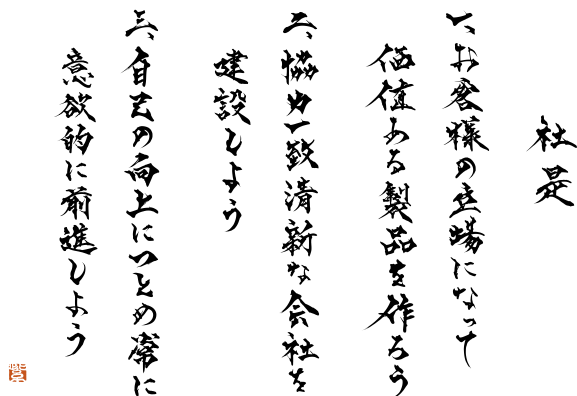 社是
一、お客様の立場になって
価値ある製品を作ろう
二、協力一致清新な会社を
建設しよう
三、自己の向上につとめ常に
意欲的に前進しよう